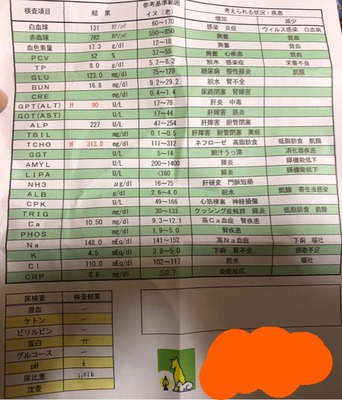 検査項目 結果 参考基準範囲 イヌ(老) 考えられる状況・疾患
増加 減少
白血球 131 60~170 感染 炎症 ウィルス感染 白血病
赤血球 782 550~850 興奮 貧血
血色素量 17.3 g/dl 興奮 貧血
PCV 52 % 37~55 興奮 心疾患 貧血
TP 8.0 g/dl 5.2~8.2 脱水 感染症 栄養不良
GLU 123.0 mg/dl 75~128 糖尿病 慢性膵炎 飢餓
BUN 16.8 mg/dl 9.2~29.2 脱水 腎不全
CRE mg/dl 0.4~1.4 尿路閉塞 腎障害
GPT(ALT) H 90 U/L 17~78 肝炎 中毒
GOT(AST) U/L 17~44 肝障害 筋炎
ALP 227 U/L 肝障害 胆管閉塞
TBIL mg/dl 0.1~0.5 肝障害 胆管閉塞 黄疸
TCHO H 313.0 mg/dl 111~312 ネフローゼ 高脂肪食 低脂肪食 飢餓
GGT U/L 5~14 胆汁うっ滞 消化器疾患
AMYL U/L 200~1400 膵炎 膵機能低下
LIPA U/L <160 膵炎 膵機能低下
NH3 μg/dl 16~75 肝硬変 門脈短絡
ALB g/dl 2.6~4.0 脱水 飢餓 寄生虫感染
CPK U/L 49~166 心筋梗塞 神経損傷
TRIG mg/dl 30~133 クッシング症候群 膵炎 低脂肪食 飢餓
Ca 10.50 mg/dl 9.3~12.1 高Ca血症 腎疾患
PHOS mg/dl 1.9~5.0 腎疾患
Na 148.0 mEq/dl 141~152 高Na血症 下痢 嘔吐
K 4.5 mEq/dl 3.8~5.0 下痢 腎不全 摂取不足
Cl 110.0 mEq/dl 102~117 脱水 嘔吐
CRP 0.8 mg/dl ≦0.7 炎症反応
尿検査 検査結果
潜血 −
ケトン −
ビリルビン −
蛋白
グルコース −
pH
尿比重
沈査 −